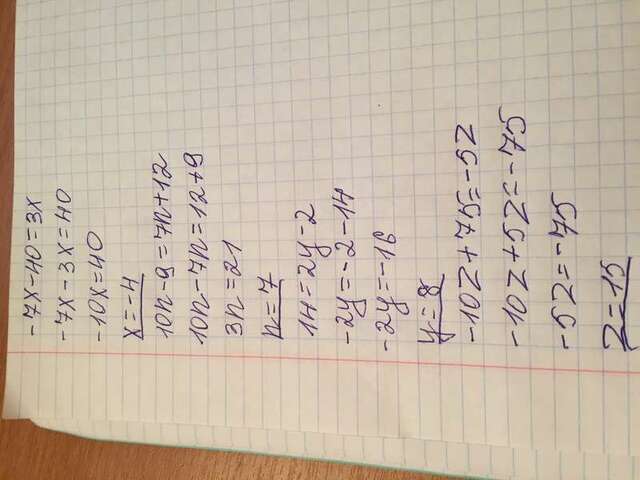 -7x-40=3x
-7x-3x=40
-10x=40
x=-4
10n-9=7n+12
10n-7n=12+9
3n=21
n=7
14=2y-2
-2y=-2-14
-2y=-16
y=8
-10z+75=-5z
-10z+5z=-75
-5z=-75
z=15